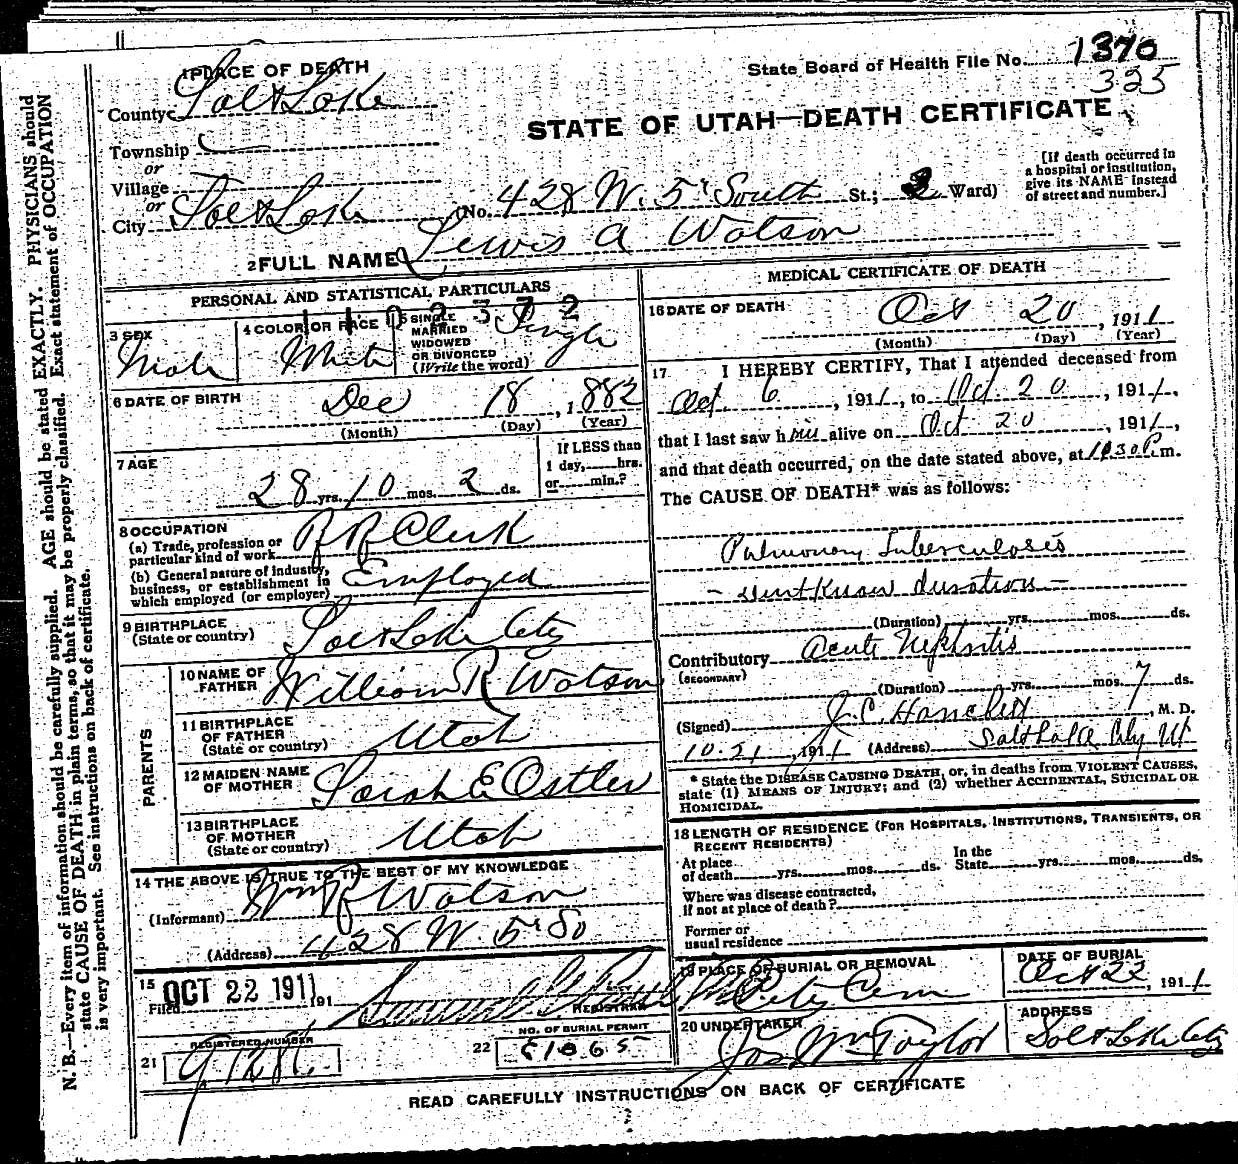 1 PLACE OF DEATH
State Board of Health File No. 1370
325
County Salt Lake
STATE OF UTAH—DEATH CERTIFICATE
Township
or
Village
or
City Salt Lake (No. 428 W. 5th South St.; 2 Ward)
[If death occurred in
a hospital or institution,
give its NAME instead
of street and number.]
2 FULL NAME Lewis A Watson
PERSONAL AND STATISTICAL PARTICULARS
3 SEX
Male
4 COLOR OR RACE
White
5 SINGLE
MARRIED
WIDOWED
OR DIVORCED
(Write the word)
Single
6 DATE OF BIRTH
Dec 18, 1882
(Month) (Day) (Year)
7 AGE
28 yrs. 10 mos. 2 ds.
If LESS than
1 day,......hrs.
or......min.?
8 OCCUPATION
(a) Trade, profession or
particular kind of work R R Clerk
(b) General nature of industry,
business, or establishment in
which employed (or employer) Employed
9 BIRTHPLACE
(State or country) Salt Lake City
PARENTS
10 NAME OF
FATHER William R Watson
11 BIRTHPLACE
OF FATHER
(State or country) Utah
12 MAIDEN NAME
OF MOTHER Sarah E Ostler
13 BIRTHPLACE
OF MOTHER
(State or country) Utah
14 THE ABOVE IS TRUE TO THE BEST OF MY KNOWLEDGE
(Informant) Wm R Watson
(Address) 428 W. 5th So
15
Filed OCT 22 1911 191
REGISTRAR
REGISTERED NUMBER
21
NO. OF BURIAL PERMIT
22 E1065
MEDICAL CERTIFICATE OF DEATH
16 DATE OF DEATH
Oct 20, 1911
(Month) (Day) (Year)
17 I HEREBY CERTIFY, That I attended deceased from
Oct. 6, 1911, to Oct 20, 1911,
that I last saw him alive on Oct 20, 1911,
and that death occurred, on the date stated above, at 1030 P.m.
The CAUSE OF DEATH* was as follows:
Pulmonary Tuberculosis
- dont know duration -
(Duration) yrs. mos. ds.
Contributory Acute Nephritis
(SECONDARY)
(Duration) yrs. mos. 7 ds.
(Signed) J. C. Hanchett, M. D.
10-21, 1911 (Address) Salt Lake City Ut
* State the DISEASE CAUSING DEATH, or, in deaths from VIOLENT CAUSES,
state (1) MEANS OF INJURY; and (2) whether ACCIDENTAL, SUICIDAL OR
HOMICIDAL.
18 LENGTH OF RESIDENCE (FOR HOSPITALS, INSTITUTIONS, TRANSIENTS, OR
RECENT RESIDENTS)
At place
of death yrs. mos. ds.
In the
State yrs. mos. ds.
Where was disease contracted,
if not at place of death?
Former or
usual residence
19 PLACE OF BURIAL OR REMOVAL
City Cem
DATE OF BURIAL
Oct 22, 1911
20 UNDERTAKER
Jos Wm Taylor
ADDRESS
Salt Lake City
READ CAREFULLY INSTRUCTIONS ON BACK OF CERTIFICATE
N. B.—Every item of information should be carefully supplied. AGE should be stated EXACTLY. PHYSICIANS should
state CAUSE OF DEATH in plain terms, so that it may be properly classified. Exact statement of OCCUPATION
is very important. See instructions on back of certificate.